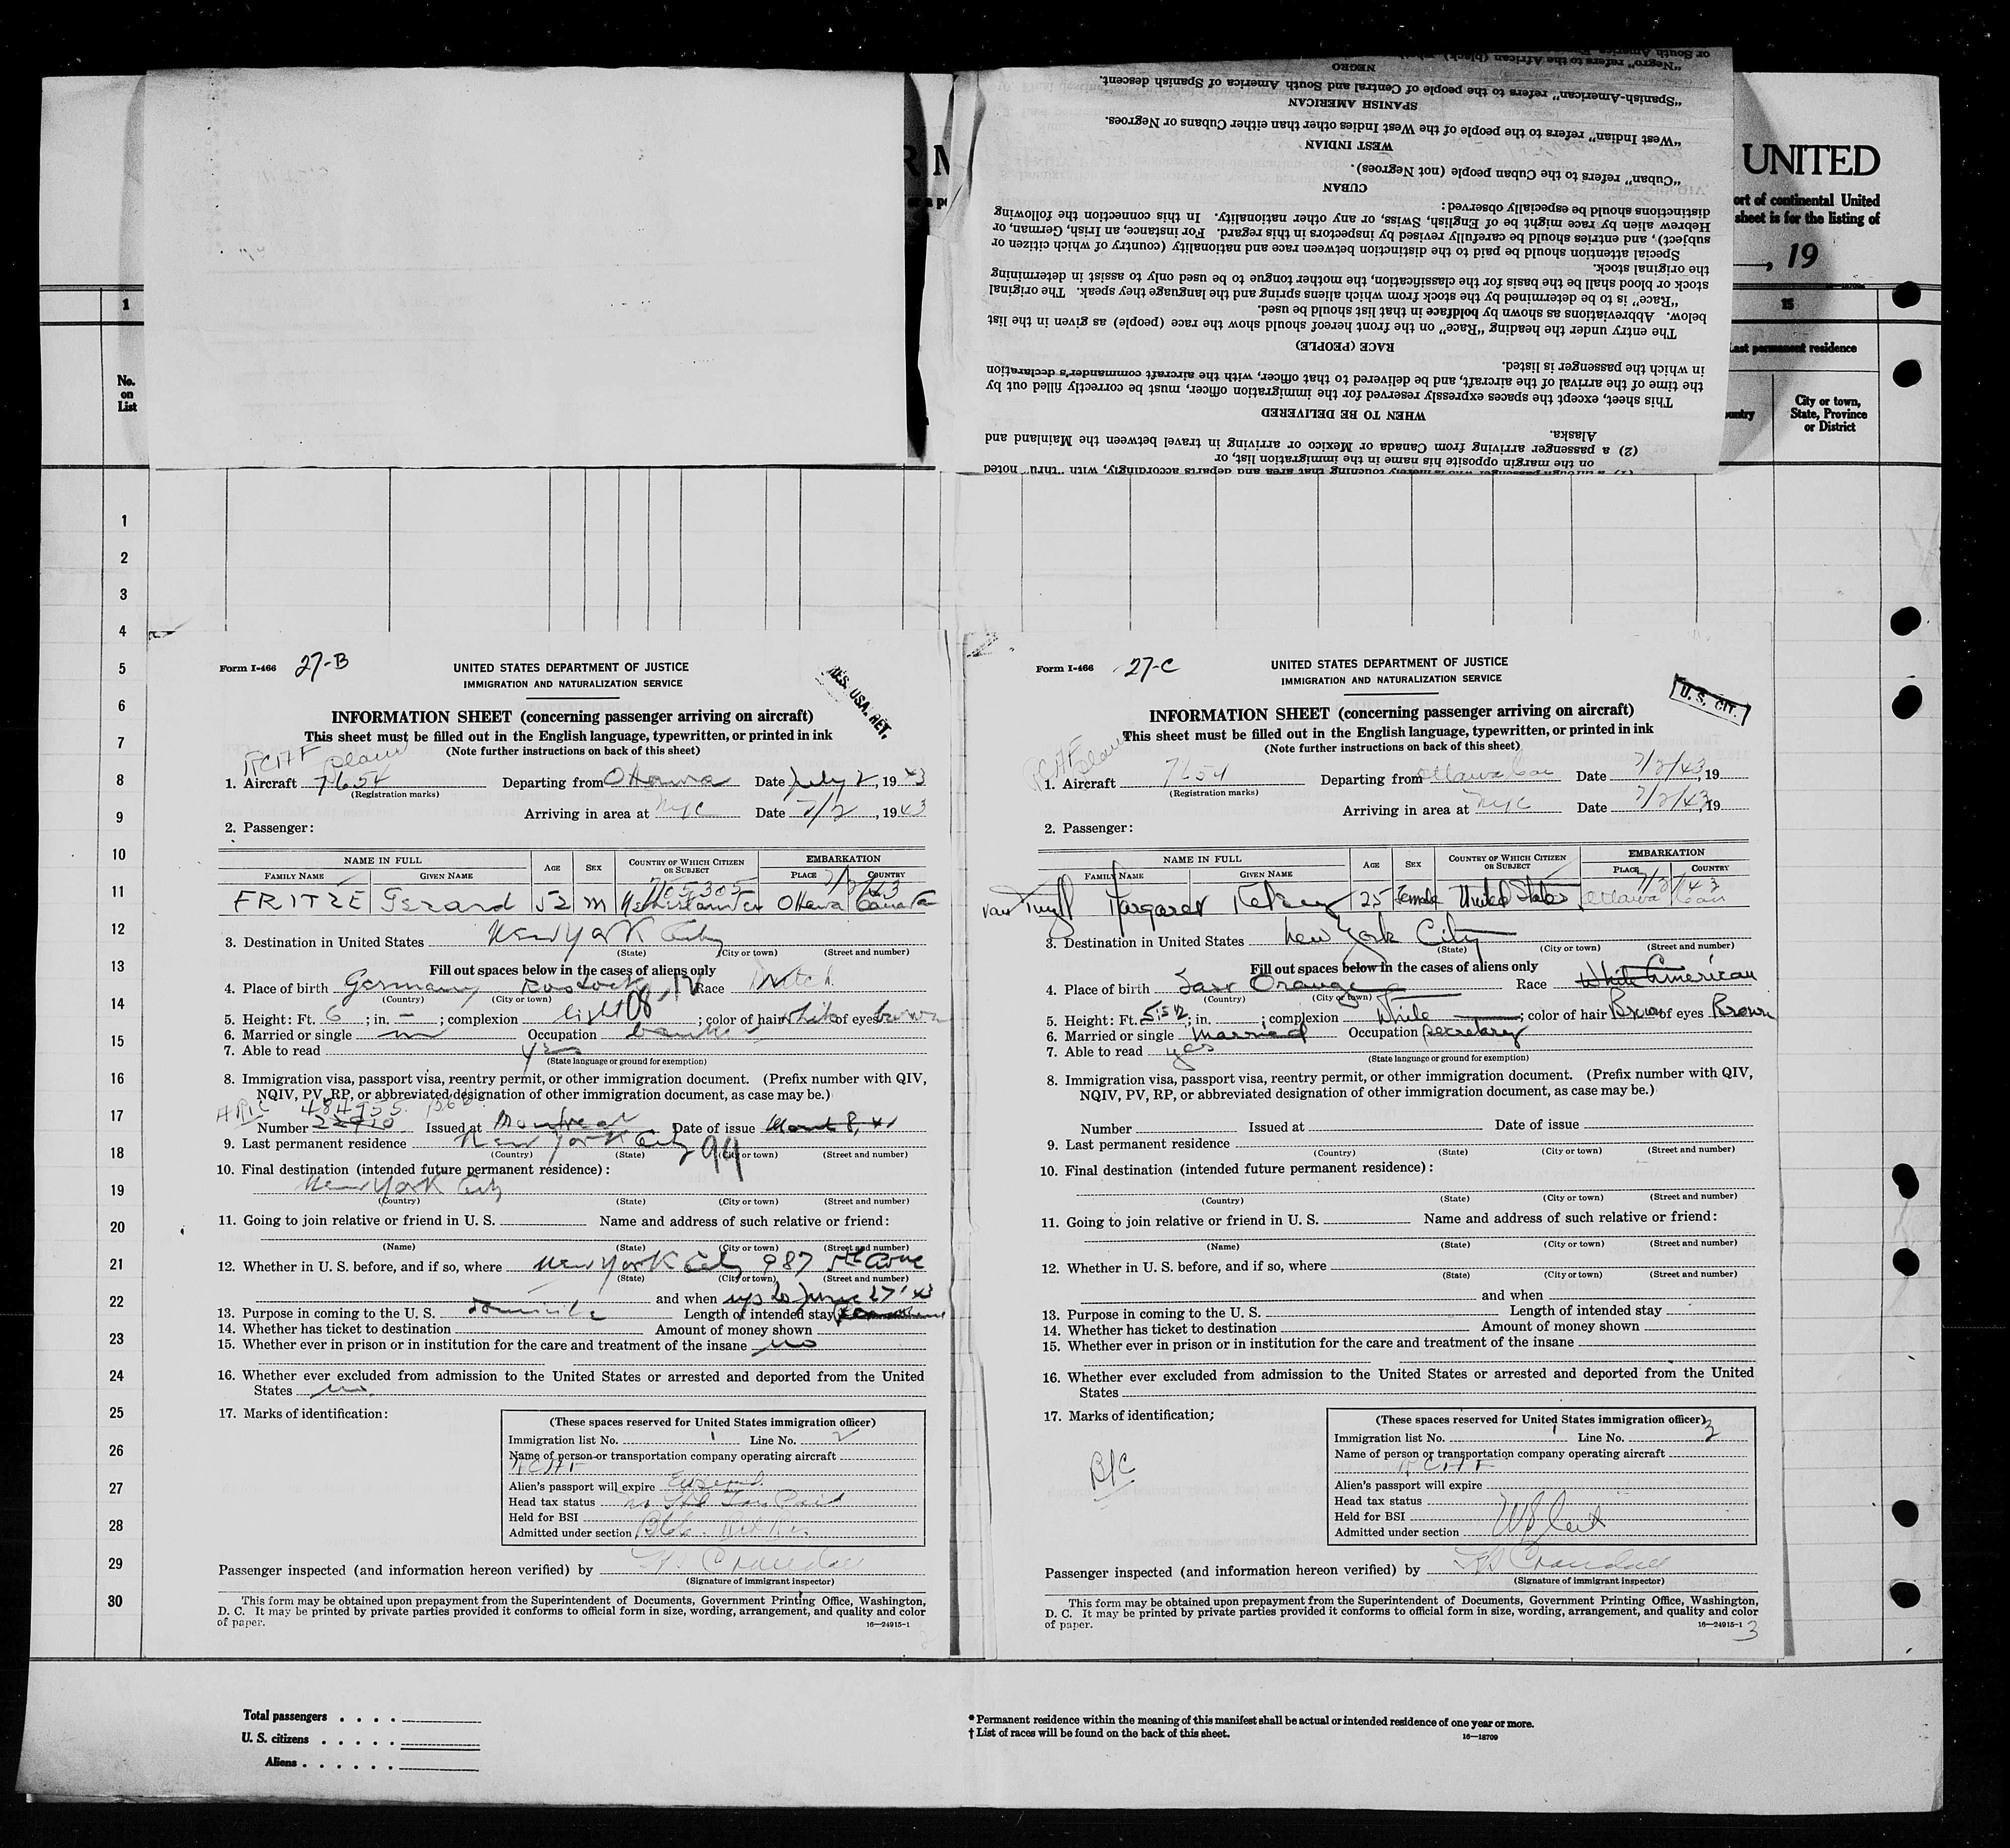 UNITED
ort of continental United
sheet is for the listing of
, 19
1
15
Last permanent residence
No.
on
List
City or town,
State, Province
or District
or South America
"Negro" refers to the African (black)
NEGRO
"Spanish-American" refers to the people of Central and South America of Spanish descent.
SPANISH AMERICAN
"West Indian" refers to the people of the West Indies other than either Cubans or Negroes.
WEST INDIAN
"Cuban" refers to the Cuban people (not Negroes).
CUBAN
distinctions should be especially observed:
Hebrew alien by race might be of English, Swiss, or any other nationality. In this connection the following
subject), and entries should be carefully revised by inspectors in this regard. For instance, an Irish, German, or
Special attention should be paid to the distinction between race and nationality (country of which citizen or
the original stock.
stock or blood shall be the basis for the classification, the mother tongue to be used only to assist in determining
"Race" is to be determined by the stock from which aliens spring and the language they speak. The original
below. Abbreviations as shown by boldface in that list should be used.
The entry under the heading "Race" on the front hereof should show the race (people) as given in the list
RACE (PEOPLE)
in which the passenger is listed.
the time of the arrival of the aircraft, and be delivered to that officer, with the aircraft commander's declaration
This sheet, except the spaces expressly reserved for the immigration officer, must be correctly filled out by
WHEN TO BE DELIVERED
Alaska.
(2) a passenger arriving from Canada or Mexico or arriving in travel between the Mainland and
on the margin opposite his name in the immigration list, or
(1) a through passenger who is merely touching that area and departs accordingly, with "thru" noted
1
2
3
4
5
6
7
8
9
10
11
12
13
14
15
16
17
18
19
20
21
22
23
24
25
26
27
28
29
30
Form I-466 27-B
UNITED STATES DEPARTMENT OF JUSTICE
IMMIGRATION AND NATURALIZATION SERVICE
RES. USA. RET.
INFORMATION SHEET (concerning passenger arriving on aircraft)
This sheet must be filled out in the English language, typewritten, or printed in ink
(Note further instructions on back of this sheet)
RCAF plane
1. Aircraft 7654 Departing from Ottawa Date July 2, 1943
(Registration marks)
Arriving in area at NYC Date 7/2, 1943
2. Passenger:
NAME IN FULL AGE SEX COUNTRY OF WHICH CITIZEN OR SUBJECT EMBARKATION
FAMILY NAME GIVEN NAME PLACE COUNTRY
705305 7/2/43
FRITZE Gerard 52 m Ottawa Canada
3. Destination in United States New York City
(State) (City or town) (Street and number)
Fill out spaces below in the cases of aliens only
4. Place of birth Germany Rostock Race Dutch
(Country) (City or town)
5. Height: Ft. 6; in. –; complexion light; color of hair white of eyes brown
6. Married or single m Occupation banker
7. Able to read yes
(State language or ground for exemption)
8. Immigration visa, passport visa, reentry permit, or other immigration document. (Prefix number with QIV,
NQIV, PV, RP, or abbreviated designation of other immigration document, as case may be.)
484955
Number Issued at Montreal Date of issue March 8, 41
9. Last permanent residence New York City 99
(Country) (State) (City or town) (Street and number)
10. Final destination (intended future permanent residence):
New York City
(Country) (State) (City or town) (Street and number)
11. Going to join relative or friend in U. S. Name and address of such relative or friend:
(Name) (State) (City or town) (Street and number)
12. Whether in U. S. before, and if so, where New York City 987 5th Ave
(State) (City or town) (Street and number)
and when up to June 27 '43
13. Purpose in coming to the U. S. domicile Length of intended stay
14. Whether has ticket to destination Amount of money shown
15. Whether ever in prison or in institution for the care and treatment of the insane no
16. Whether ever excluded from admission to the United States or arrested and deported from the United
States no
17. Marks of identification:
(These spaces reserved for United States immigration officer)
Immigration list No. 1 Line No. 2
Name of person or transportation company operating aircraft
RCAF
Alien's passport will expire
Head tax status
Held for BSI
Admitted under section
Passenger inspected (and information hereon verified) by Crandall
(Signature of immigrant inspector)
This form may be obtained upon prepayment from the Superintendent of Documents, Government Printing Office, Washington,
D. C. It may be printed by private parties provided it conforms to official form in size, wording, arrangement, and quality and color
of paper. 16—24915-1
Form I-466 27-C
UNITED STATES DEPARTMENT OF JUSTICE
IMMIGRATION AND NATURALIZATION SERVICE
U. S. CIT.
INFORMATION SHEET (concerning passenger arriving on aircraft)
This sheet must be filled out in the English language, typewritten, or printed in ink
(Note further instructions on back of this sheet)
RCAF plane
1. Aircraft 7654 Departing from Ottawa Can Date 7/2/43, 19
(Registration marks)
Arriving in area at NYC Date 7/2/43, 19
2. Passenger:
NAME IN FULL AGE SEX COUNTRY OF WHICH CITIZEN OR SUBJECT EMBARKATION
FAMILY NAME GIVEN NAME PLACE COUNTRY
7/2/43
van Tuyll Margaret 25 Female United States Ottawa Can
3. Destination in United States New York City
(State) (City or town) (Street and number)
Fill out spaces below in the cases of aliens only
4. Place of birth East Orange Race White American
(Country) (City or town)
5. Height: Ft. 5'5½; in.; complexion White; color of hair Brown of eyes Brown
6. Married or single Married Occupation secretary
7. Able to read yes
(State language or ground for exemption)
8. Immigration visa, passport visa, reentry permit, or other immigration document. (Prefix number with QIV,
NQIV, PV, RP, or abbreviated designation of other immigration document, as case may be.)
Number Issued at Date of issue
9. Last permanent residence
(Country) (State) (City or town) (Street and number)
10. Final destination (intended future permanent residence):
(Country) (State) (City or town) (Street and number)
11. Going to join relative or friend in U. S. Name and address of such relative or friend:
(Name) (State) (City or town) (Street and number)
12. Whether in U. S. before, and if so, where
(State) (City or town) (Street and number)
and when
13. Purpose in coming to the U. S. Length of intended stay
14. Whether has ticket to destination Amount of money shown
15. Whether ever in prison or in institution for the care and treatment of the insane
16. Whether ever excluded from admission to the United States or arrested and deported from the United
States
17. Marks of identification;
B/C
(These spaces reserved for United States immigration officer)
Immigration list No. 1 Line No. 3
Name of person or transportation company operating aircraft
RCAF
Alien's passport will expire
Head tax status
Held for BSI
Admitted under section
Passenger inspected (and information hereon verified) by Crandall
(Signature of immigrant inspector)
This form may be obtained upon prepayment from the Superintendent of Documents, Government Printing Office, Washington,
D. C. It may be printed by private parties provided it conforms to official form in size, wording, arrangement, and quality and color
of paper. 16—24915-1 3
Total passengers . . . .
U. S. citizens . . . . .
Aliens . . . . . .
* Permanent residence within the meaning of this manifest shall be actual or intended residence of one year or more.
† List of races will be found on the back of this sheet. 16—18709